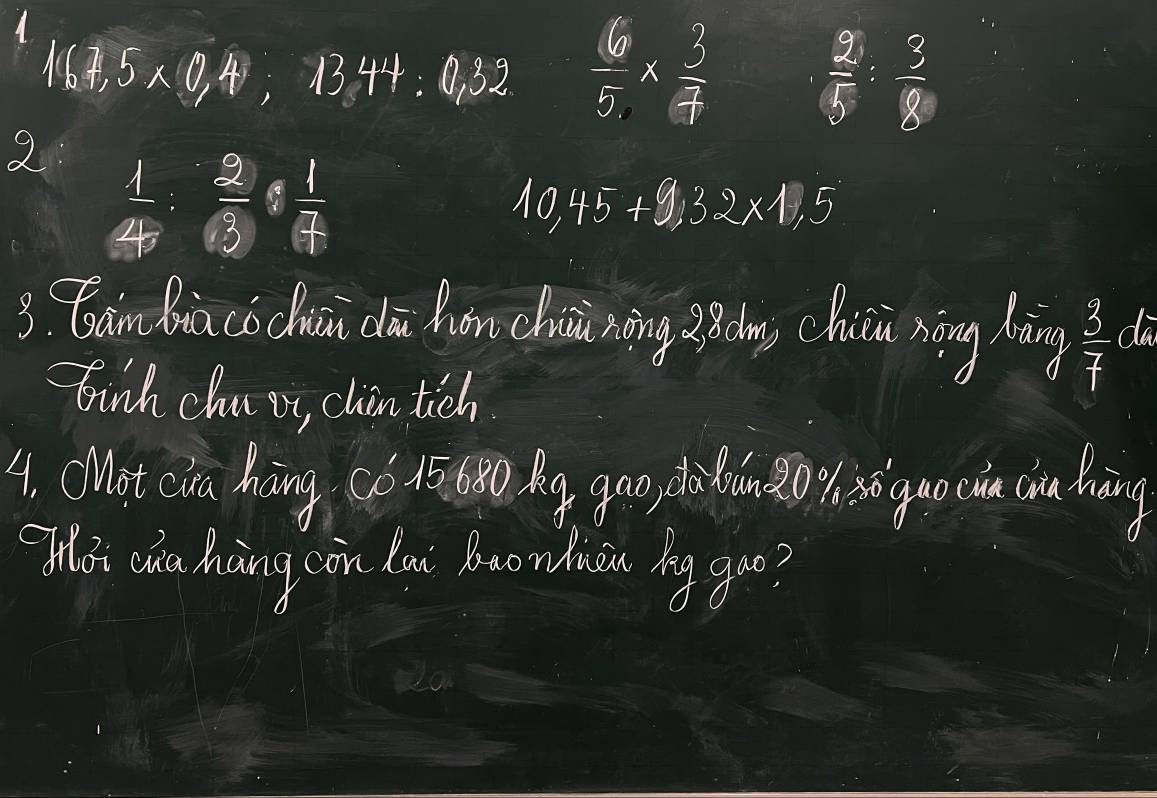 1
167,5 × 0,4 ; 13,44 : 0,32   6/5 × 3/7   2/5 : 3/8
2:
1/4 : 2/3 : 1/7   10,45 + 9,32 × 1,5
3. Tấm bìa có chiều dài hơn chiều rộng 2,8dm, chiều rộng bằng 3/7 dà
Tính chu vi, diện tích
4. Một cửa hàng có 15 680 kg gạo, đã bán 20% số gạo của cửa hàng.
Hỏi cửa hàng còn lại bao nhiêu kg gạo?